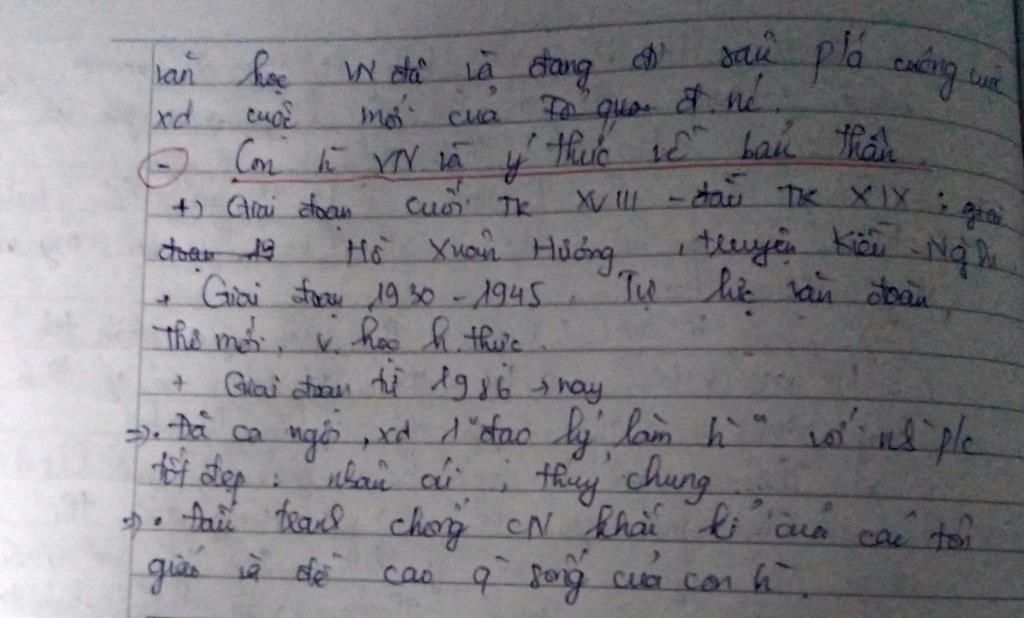 văn học VN đã và đang đi sâu p/á cuông cuộc
xd cuộc mới của đ. nc.
- Con h̀ VN và ý thức về bản thân.
+) Giai đoạn cuối TK XVIII - đầu TK XIX : giai
đoạn 19 Hồ Xuân Hương, truyện Kiều - Ngdu
+ Giai đoạn 1930 - 1945. Tự lực văn đoàn,
Thơ mới, v. học h. thực.
+ Giai đoạn từ 1986 → nay
⇒. Đã ca ngợi, xd 1 "đạo lý làm h̀" với n~ p/c
tốt đẹp : nhân ái, thuỷ chung...
⇒. Đấu tranh chống CN khắc kỉ của các tôn
giáo và đề cao q̀ sống của con h̀.